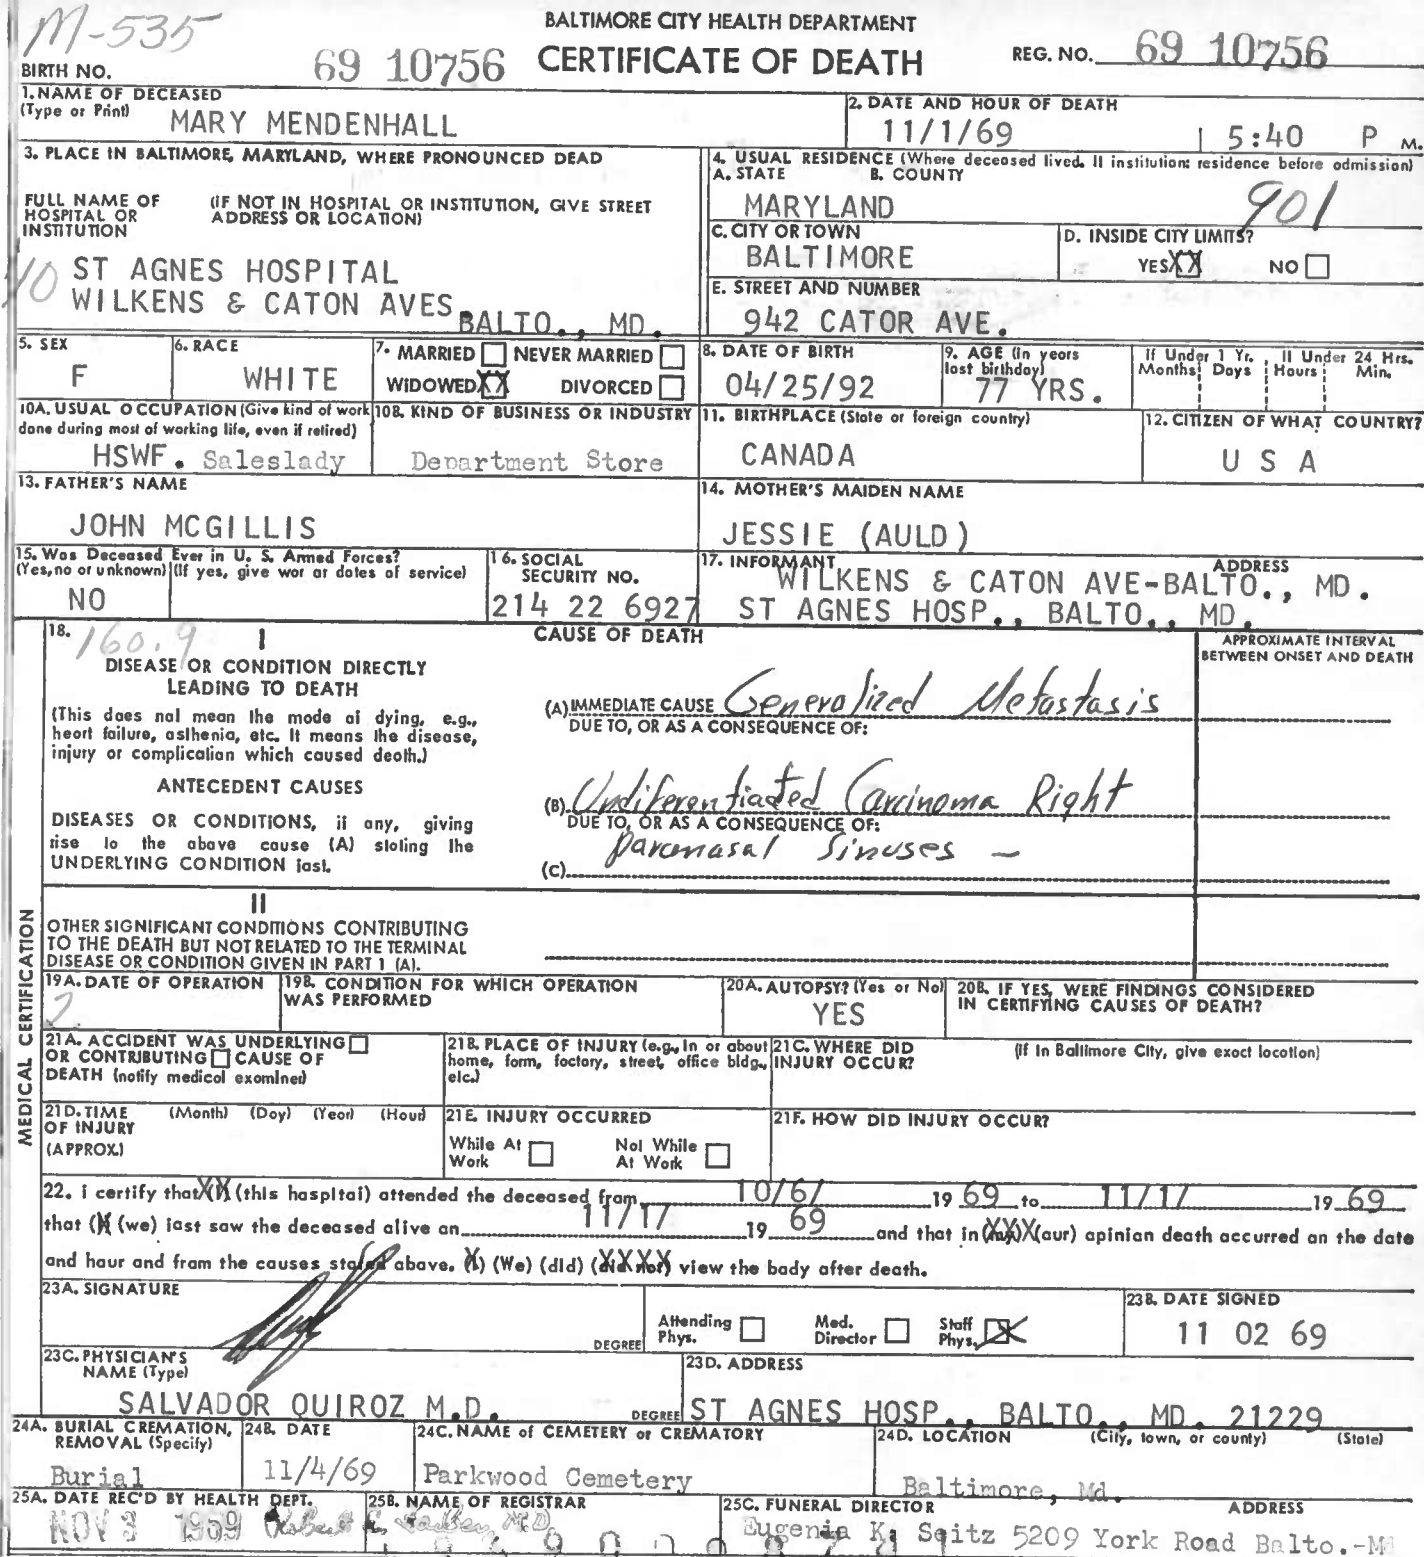 M-535
BALTIMORE CITY HEALTH DEPARTMENT
BIRTH NO. 69 10756 CERTIFICATE OF DEATH REG. NO. 69 10756
1. NAME OF DECEASED
(Type or Print) MARY MENDENHALL
2. DATE AND HOUR OF DEATH
11/1/69 5:40 P M.
3. PLACE IN BALTIMORE, MARYLAND, WHERE PRONOUNCED DEAD
FULL NAME OF HOSPITAL OR INSTITUTION
(IF NOT IN HOSPITAL OR INSTITUTION, GIVE STREET ADDRESS OR LOCATION)
10 ST AGNES HOSPITAL
WILKENS & CATON AVES BALTO., MD.
4. USUAL RESIDENCE (Where deceased lived. If institution: residence before admission)
A. STATE B. COUNTY
MARYLAND 901
C. CITY OR TOWN
BALTIMORE
D. INSIDE CITY LIMITS?
YES XX NO
E. STREET AND NUMBER
942 CATOR AVE.
5. SEX
F
6. RACE
WHITE
7. MARRIED NEVER MARRIED
WIDOWED XX DIVORCED
8. DATE OF BIRTH
04/25/92
9. AGE (In years last birthday)
77 YRS.
If Under 1 Yr. If Under 24 Hrs.
Months Days Hours Min.
10A. USUAL OCCUPATION (Give kind of work done during most of working life, even if retired)
HSWF. Saleslady
10B. KIND OF BUSINESS OR INDUSTRY
Department Store
11. BIRTHPLACE (State or foreign country)
CANADA
12. CITIZEN OF WHAT COUNTRY?
U S A
13. FATHER'S NAME
JOHN MCGILLIS
14. MOTHER'S MAIDEN NAME
JESSIE (AULD)
15. Was Deceased Ever in U. S. Armed Forces?
(Yes, no or unknown) (If yes, give war or dates of service)
NO
16. SOCIAL SECURITY NO.
214 22 6927
17. INFORMANT ADDRESS
WILKENS & CATON AVE-BALTO., MD.
ST AGNES HOSP., BALTO., MD.
MEDICAL CERTIFICATION
18. 160.9 I CAUSE OF DEATH
APPROXIMATE INTERVAL BETWEEN ONSET AND DEATH
DISEASE OR CONDITION DIRECTLY LEADING TO DEATH
(This does not mean the mode of dying, e.g., heart failure, asthenia, etc. It means the disease, injury or complication which caused death.)
(A) IMMEDIATE CAUSE Generalized Metastasis
DUE TO, OR AS A CONSEQUENCE OF:
ANTECEDENT CAUSES
DISEASES OR CONDITIONS, if any, giving rise to the above cause (A) stating the UNDERLYING CONDITION last.
(B) Undiferentiated Carcinoma Right
DUE TO, OR AS A CONSEQUENCE OF:
paranasal Sinuses -
(C)
II
OTHER SIGNIFICANT CONDITIONS CONTRIBUTING TO THE DEATH BUT NOT RELATED TO THE TERMINAL DISEASE OR CONDITION GIVEN IN PART 1 (A).
19A. DATE OF OPERATION
2
19B. CONDITION FOR WHICH OPERATION WAS PERFORMED
20A. AUTOPSY? (Yes or No)
YES
20B. IF YES, WERE FINDINGS CONSIDERED IN CERTIFYING CAUSES OF DEATH?
21A. ACCIDENT WAS UNDERLYING OR CONTRIBUTING CAUSE OF DEATH (notify medical examiner)
21B. PLACE OF INJURY (e.g., in or about home, farm, factory, street, office bldg., etc.)
21C. WHERE DID INJURY OCCUR? (If in Baltimore City, give exact location)
21D. TIME OF INJURY (APPROX.) (Month) (Day) (Year) (Hour)
21E. INJURY OCCURRED
While At Work Not While At Work
21F. HOW DID INJURY OCCUR?
22. I certify that XX (this hospital) attended the deceased from 10/6/ 19 69 to 11/1/ 19 69
that (X) (we) last saw the deceased alive on 11/1/ 19 69 and that in XXX (our) opinion death occurred on the date
and hour and from the causes stated above. (X) (We) (did) (did not) view the body after death.
23A. SIGNATURE DEGREE
Attending Phys. Med. Director Staff Phys. X
23B. DATE SIGNED
11 02 69
23C. PHYSICIAN'S NAME (Type)
SALVADOR QUIROZ M.D. DEGREE
23D. ADDRESS
ST AGNES HOSP., BALTO., MD. 21229
24A. BURIAL CREMATION, REMOVAL (Specify)
Burial
24B. DATE
11/4/69
24C. NAME of CEMETERY or CREMATORY
Parkwood Cemetery
24D. LOCATION (City, town, or county) (State)
Baltimore, Md.
25A. DATE REC'D BY HEALTH DEPT.
NOV 3 1969
25B. NAME OF REGISTRAR
Robert E. M.D.
25C. FUNERAL DIRECTOR ADDRESS
Eugenia K. Seitz 5209 York Road Balto.-M